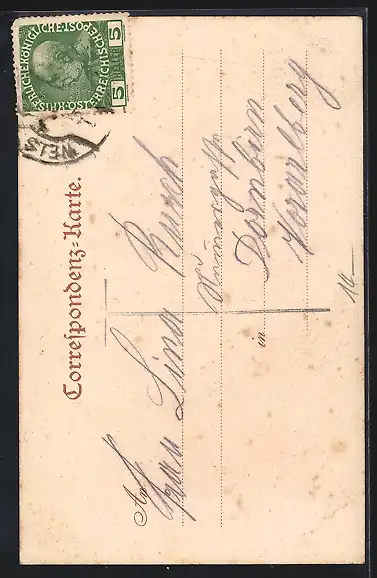 KAISERLICHEKÖNIGLICHE ÖSTERREICHISCHE POST
5 HELLER 5
WELS
Correspondenz-Karte.
An Frau Lina Rusch
in Dornbirn
Vorarlberg
14.-